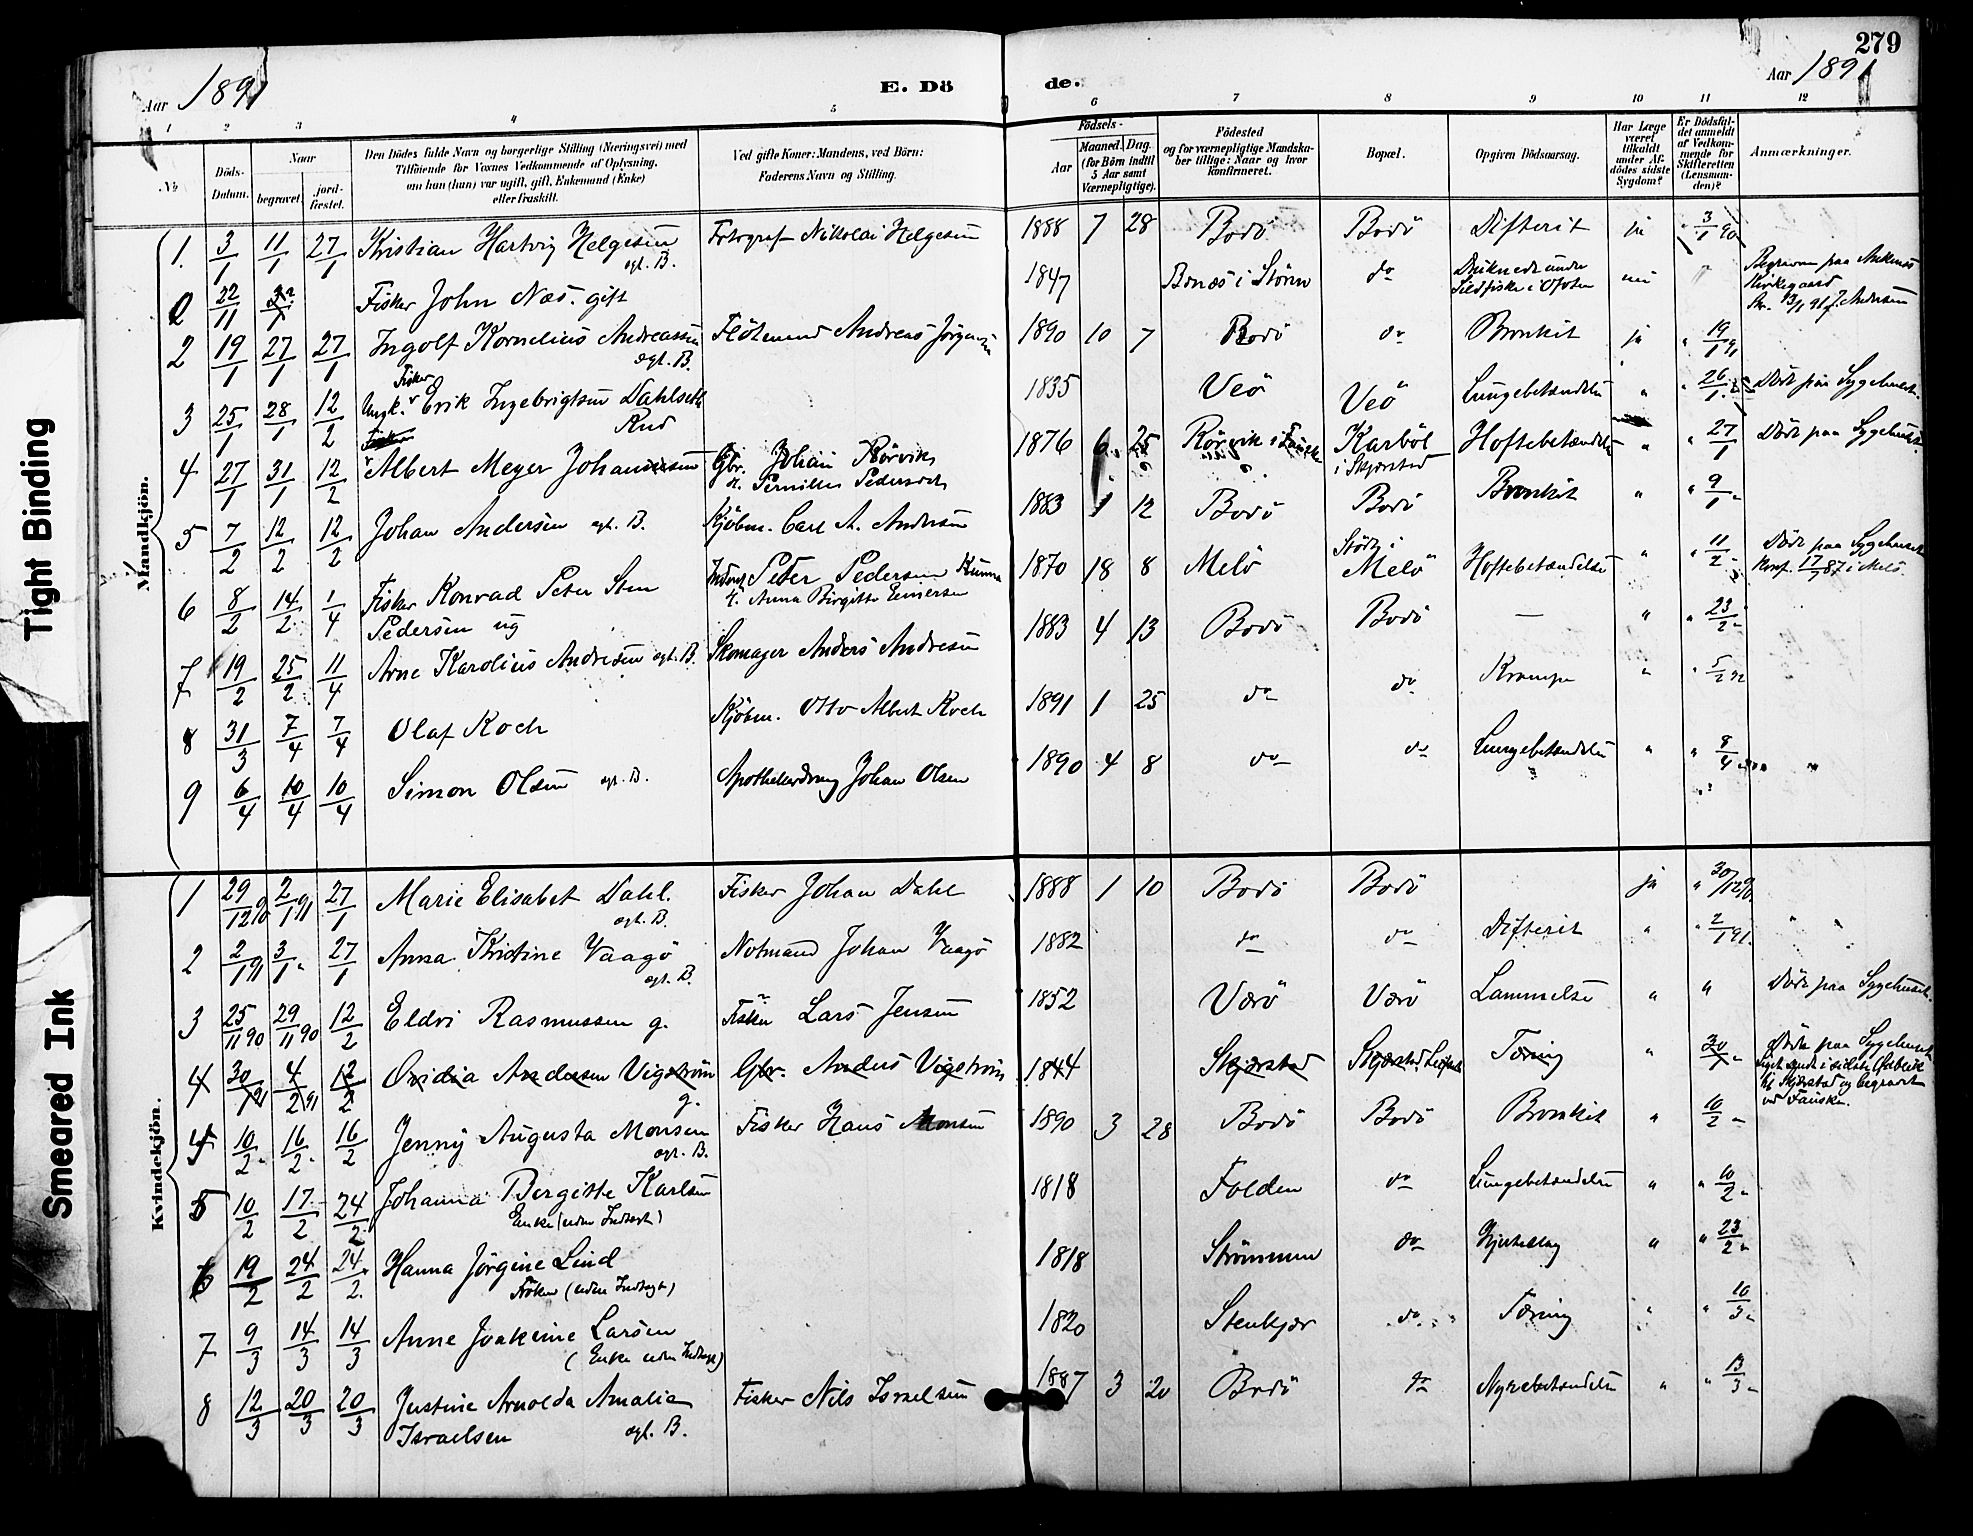 279
Aar 1891
E. Dö de.
Aar 1891
1 2 3 4 5 6 7 8 9 10 11 12
No
Döds-Datum.
Naar
begravet.
jord-fæstet.
Den Dödes fulde Navn og borgerlige Stilling (Næringsvei) med
Tilföiende for Voxnes Vedkommende af Oplysning,
om han (hun) var ugift, gift, Enkemand (Enke)
eller fraskilt.
Ved gifte Koner: Mandens, ved Börn:
Faderens Navn og Stilling.
Födsels-
Aar
Maaned. Dag.
(for Börn indtil
5 Aar samt
Værnepligtige).
Födested
og for værnepligtige Mandska-
ber tillige: Naar og hvor
konfirmeret.
Bopæl.
Opgiven Dödsaarsag.
Har Læge
været
tilkaldt
under Af-
dödes sidste
Sygdom?
Er Dödsfal-
det anmeldt
af Vedkom-
mende for
Skifteretten
(Lensman-
den)?
Anmærkninger.
Mandkjön.
1. 3/1 11/1 27/1 Kristian Hartvig Helgesen Fotograf Nikolai Helgesen 1888 7 28 Bodö Bodö Difterit ja 3/1 90
ægt. B.
2 22/11 Fisker John Næs. gift 1847 Bonæs i Stören do Druknede under nei Begraven paa Ankenes
Sildfiske i Ofoten Kirkegaard
13/1 91 J. Andersen
2 19/1 27/1 27/1 Ingolf Kornelius Andreassen Flötmand Andreas Jörgensen 1890 10 7 Bodö do Bronkit ja " 19/1 91
ægt. B.
Fisker
3 25/1 28/1 12/2 Ungk. Erik Ingebrigtsen Dahlseth 1835 Veö Veö Lungebetændelse " " 26/1 Död paa Sygehuset.
Rud
4 27/1 31/1 12/2 Albert Meyer Johannesen Gbr. Johan Rörvik 1876 6 25 Rörvik i Karböl Hoftebetændelse " " 27/1 Död paa Sygehuset.
Pernille Pedersdt i Skjerstad
5 7/2 12/2 12/2 Johan Andersen ægt. B. Kjöbm. Carl A. Andersen 1883 1 12 Bodö Bodö Bronkit " " 9/1 "
6 8/2 14/2 1/4 Fisker Konrad Peter Sten Peter Pedersen Kunna 1870 18 8 Melö Stödt i Melö Hoftebetændelse " " 11/2 Död paa Sygehuset
Pedersen ug Anna Birgitte Einersen Konf. 17/7 87 i Melö.
7 19/2 25/2 11/4 Arne Karolius Andresen ægt. B. Skomager Anders Andresen 1883 4 13 Bodö Bodö — " " 23/2 "
8 31/3 7/4 7/4 Olaf Koch Kjöbm. Otto Albert Koch 1891 1 25 do do Krampe " " 5/2 92
9 6/4 10/4 10/4 Simon Olsen ægt. B. Johan Olsen 1890 4 8 do do Lungebetændelse " " 8/4
Kvindekjön.
1 29/12 90 2/1 91 27/1 Marie Elisabet Dahl. Fisker Johan Dahl 1888 1 10 Bodö Bodö ja " 30/12 90
ægt. B.
2 2/1 91 3/1 " 27/1 Anna Kristine Vaagö Notmand Johan Vaagö 1882 do do Difterit " " 2/1 91.
ægt. B.
3 25/11 90 29/11 90 12/2 Eldri Rasmussen g. Fisker Lars Jensen 1852 Værö Værö Lammelse " " Död paa Sygehuset.
4 30/1 91 4/2 91 12/2 Ovidia Andersen Vigström Gbr. Anders Vigström 1844 Skjerstad Skjerstad Tæring " 30/1 " Död paa Sygehuset
g. Liget sendt i
til Skjerstad og begravet
ved Fauske.
4 10/2 " 16/2 " 16/2 Jenny Augusta Monsen Fisker Hans Monsen 1890 3 28 Bodö Bodö Bronkit " 10/2 "
ægt. B.
5 10/2 17/2 24/2 Johanna Bergitte Karlsen 1818 Folden do Lungebetændelse " " 10/2 "
Enke (uden Indtægt)
6 19/2 24/2 24/2. Hanna Jörgine Lind 1818 Strömmen do Hjerteslag " " 23/2 "
Fröken (uden Indtægt)
7 9/3 14/3 14/3 Anne Joakime Larsen 1820 Stenkjær do Tæring " " 10/3 "
(Enke uden Indtægt)
8 12/3 20/3 20/3 Justine Arnolda Amalia Fisker Nils Israelsen 1887 3 20 Bodö do Nyrebetændelse " " 13/3 "
Israelsen ægt. B.
Tight Binding
Smeared Ink